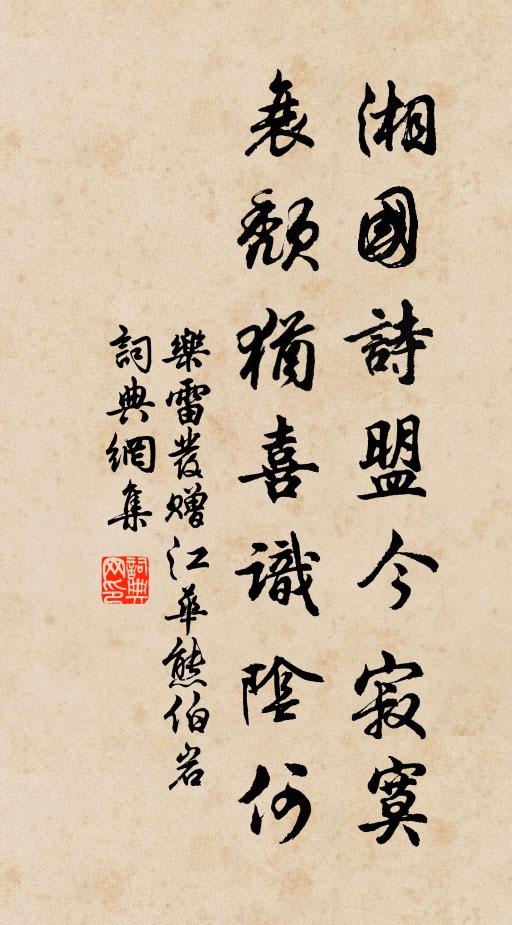 湘國詩盟今寂寞
衰頹猶喜識陰何
樂雷發贈江華熊伯岩
詞典網集
詞典网印